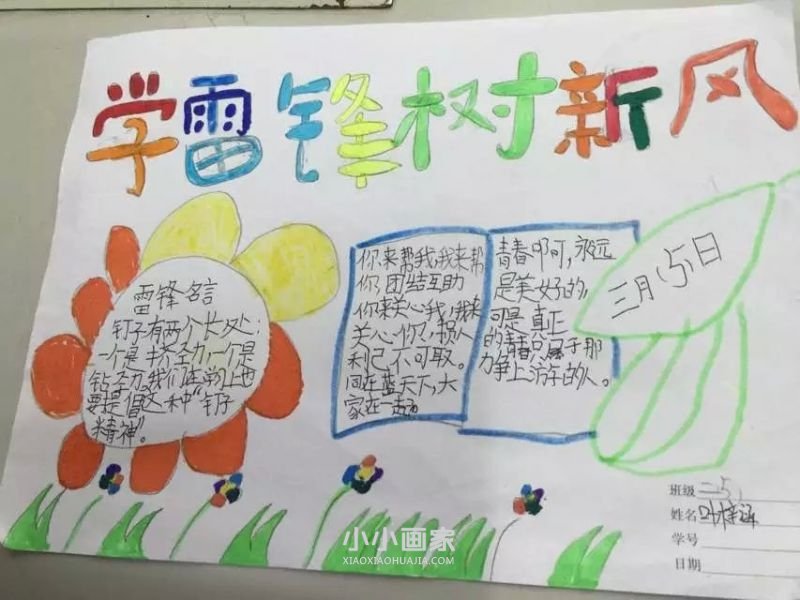 学雷锋树新风
雷锋名言
钉子有两个长处:
一个是挤劲力,一个是
钻劲力,我们在学习上也
要提倡这种“钉子
精神”。
你来帮我,我来帮
你,团结互助
你来关心我,我来
关心你,损人
利己不可取。
同在蓝天下,大
家在一起
青春啊,永远
是美好的,
可是真正
的青春只属于那
力争上游的人。
三月五日
班级
姓名 叶梓涵
学号
日期
小小画家
XIAOXIAOHUAJIA.COM